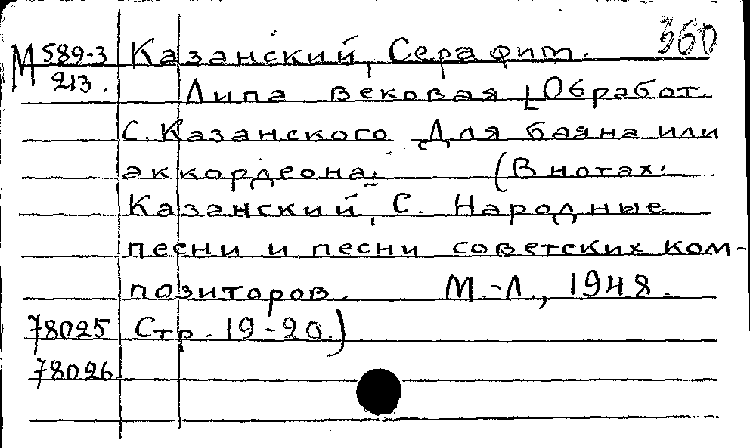 360
М 589-3 Казанский, Серафим.
213. Липа вековая [Обработ.
С. Казанского. Для баяна или
аккордеона. (В нотах:
Казанский, С. Народные
песни и песни советских ком-
позиторов. М.-Л., 1948.
78025 Стр. 19-20.)
78026